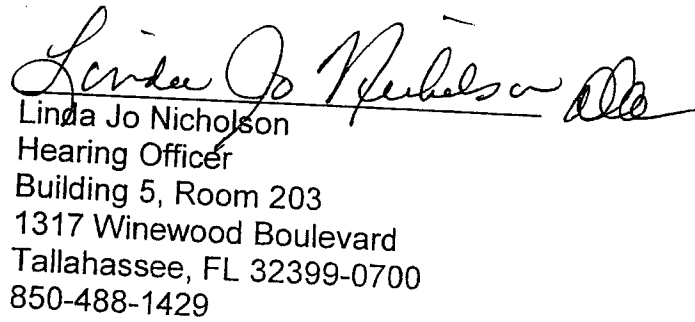 Linda Jo Nicholson
Linda Jo Nicholson
Hearing Officer
Building 5, Room 203
1317 Winewood Boulevard
Tallahassee, FL 32399-0700
850-488-1429